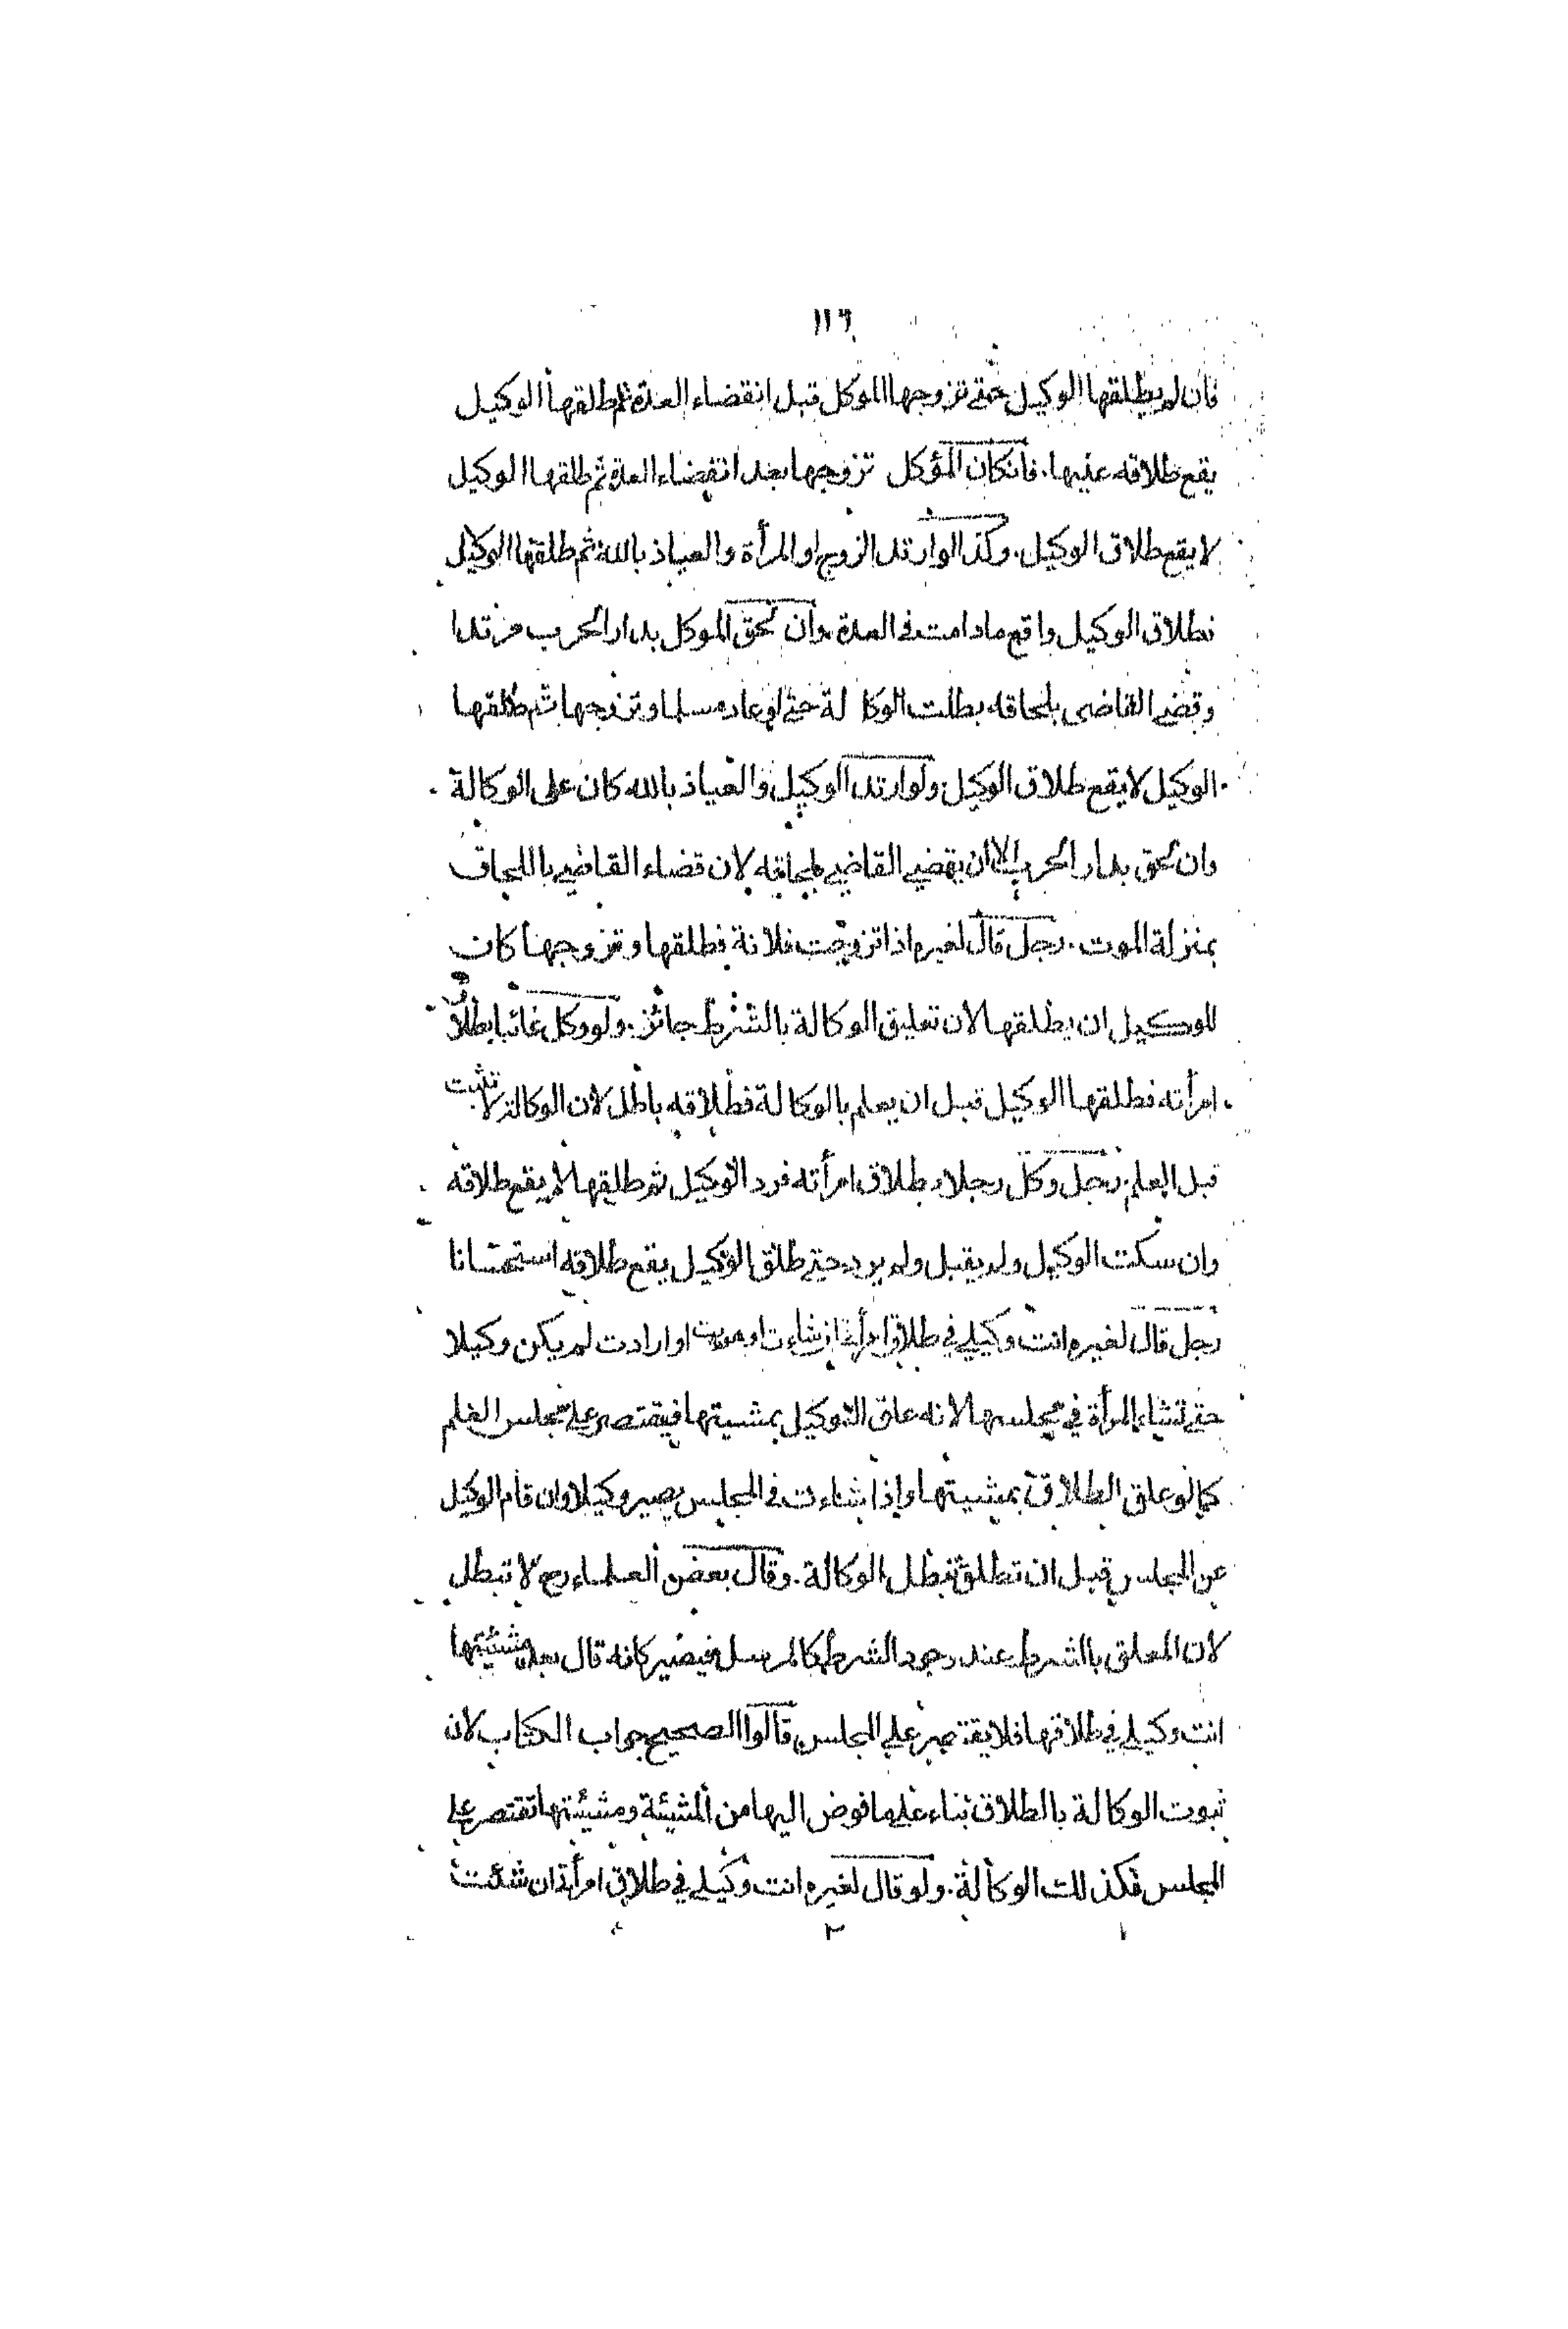 ١١٦
فان لم يطلقها الوكيل حتى تزوجها الموكل قبل انقضاء العدة ثم طلقها الوكيل
يقع طلاقه عليها. فان كان المؤكل تزوجها بعد انقضاء العدة ثم طلقها الوكيل
لا يقع طلاق الوكيل. وكذا لو ارتد الزوج او المرأة والعياذ بالله ثم طلقها الوكيل
فطلاق الوكيل واقع مادامت في العدة وان لحق الموكل بدار الحرب مرتدا
وقضى القاضى بلحاقه بطلت الوكالة حتى لو عاد مسلما وتزوجها ثم طلقها
الوكيل لا يقع طلاق الوكيل ولو ارتد الوكيل والعياذ بالله كان على الوكالة
وان لحق بدار الحرب الا ان يقضي القاضي بلحاقه لان قضاء القاضي باللحاق
بمنزلة الموت. رجل قال لغيره اذا تزوجت فلانة فطلقها وتزوجها كان
للوكيل ان يطلقها لان تعليق الوكالة بالشرط جائز. ولو وكل غائبا بطلاق
امرأته فطلقها الوكيل قبل ان يعلم بالوكالة فطلاقه باطل لان الوكالة لا تثبت
قبل العلم. رجل وكل رجلا بطلاق امرأته فرد الوكيل ثم طلقها لا يقع طلاقه
وان سكت الوكيل ولم يقبل ولم يرد حتى طلق الوكيل يقع طلاقه استحسانا
رجل قال لغيره انت وكيلي في طلاق امرأتي ان شاءت او هويت او ارادت لم يكن وكيلا
حتى تشاء المرأة في مجلسها لانه علق التوكيل بمشيتها فيقتصر على مجلس العلم
كما لو علق الطلاق بمشيتها واذا شاءت في المجلس يصير وكيلا وان قام الوكيل
عن المجلس قبل ان تطلق تبطل الوكالة. وقال بعض العلماء رح لا تبطل
لان المعلق بالشرط عند وجود الشرط كالمرسل فيصير كانه قال بعد مشيئتها
انت وكيلي في طلاقها فلا يقتصر على المجلس قالوا الصحيح جواب الكتاب لان
ثبوت الوكالة بالطلاق بناء على ما فوض اليها من المشيئة ومشيئتها تقتصر على
المجلس فكذلك الوكالة. ولو قال لغيره انت وكيلي في طلاق امرأتي ان شئت